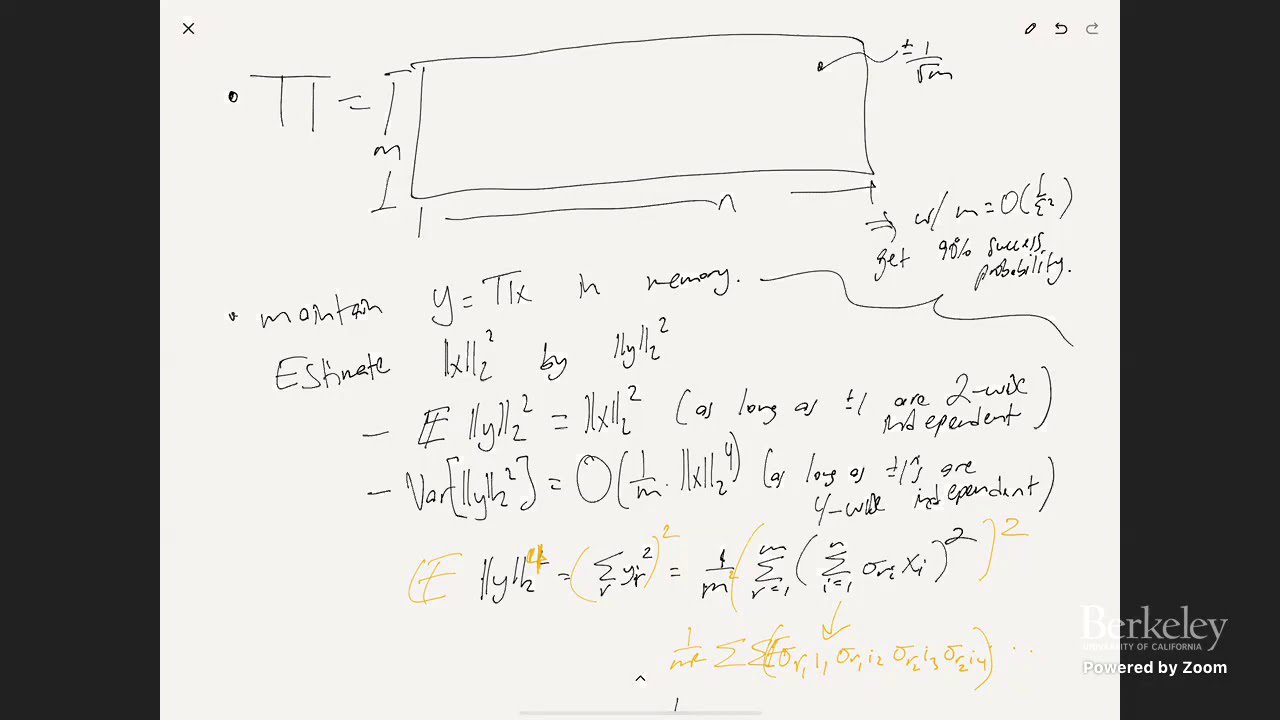 • Π =
m
n
± 1/√m
⇒ w/ m = O(1/ε²)
get 90% success
probability.
• maintain y = Πx in memory.
Estimate ||x||₂² by ||y||₂²
– E ||y||₂² = ||x||₂² (as long as ±1 are 2-wise
independent)
– Var[||y||₂²] = O(1/m · ||x||₂⁴) (as long as ±1's are
4-wise independent)
E ||y||₂⁴ = (Σ_r y_r²)² = 1/m² (Σ_{r=1}^m (Σ_{i=1}^n σ_{ri} x_i)²)²
Berkeley
UNIVERSITY OF CALIFORNIA
Powered by Zoom